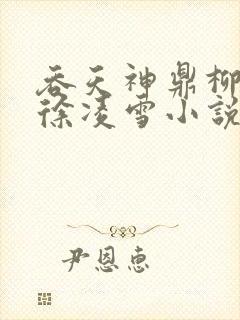 吞天神鼎柳
徐凌雪小說
尹恩惠